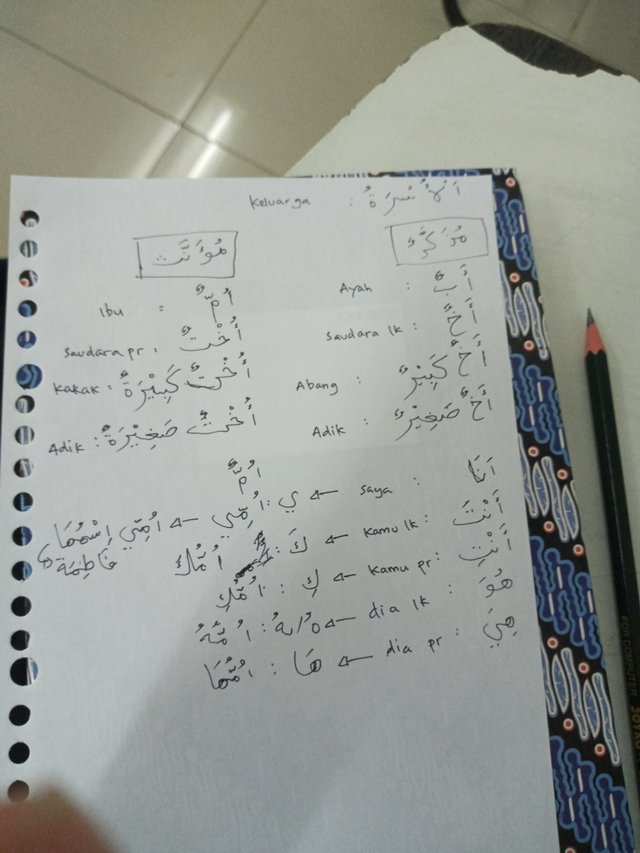 Keluarga : اَلْأُسْرَةُ
مُؤَنَّث مُذَكَّرٌ
Ibu = أُمٌّ Ayah : أَبٌ
Saudara pr : أُخْتٌ Saudara lk : أَخٌ
Kakak : أُخْتٌ كَبِيْرَةٌ Abang : أَخٌ كَبِيْرٌ
Adik : أُخْتٌ صَغِيْرَةٌ Adik : أَخٌ صَغِيْرٌ
اُمٌّ
اَنَا : saya ← ي : اُمِّي ← اُمِّي إِسْمُهَا فَاطِمَة
أَنْتَ : Kamu lk ← كَ : اُمُّكَ
أَنْتِ : Kamu pr ← كِ : اُمُّكِ
هُوَ : dia lk ← هُ/ـهُ : اُمُّهُ
هِيَ : dia pr ← هَا : اُمُّهَا